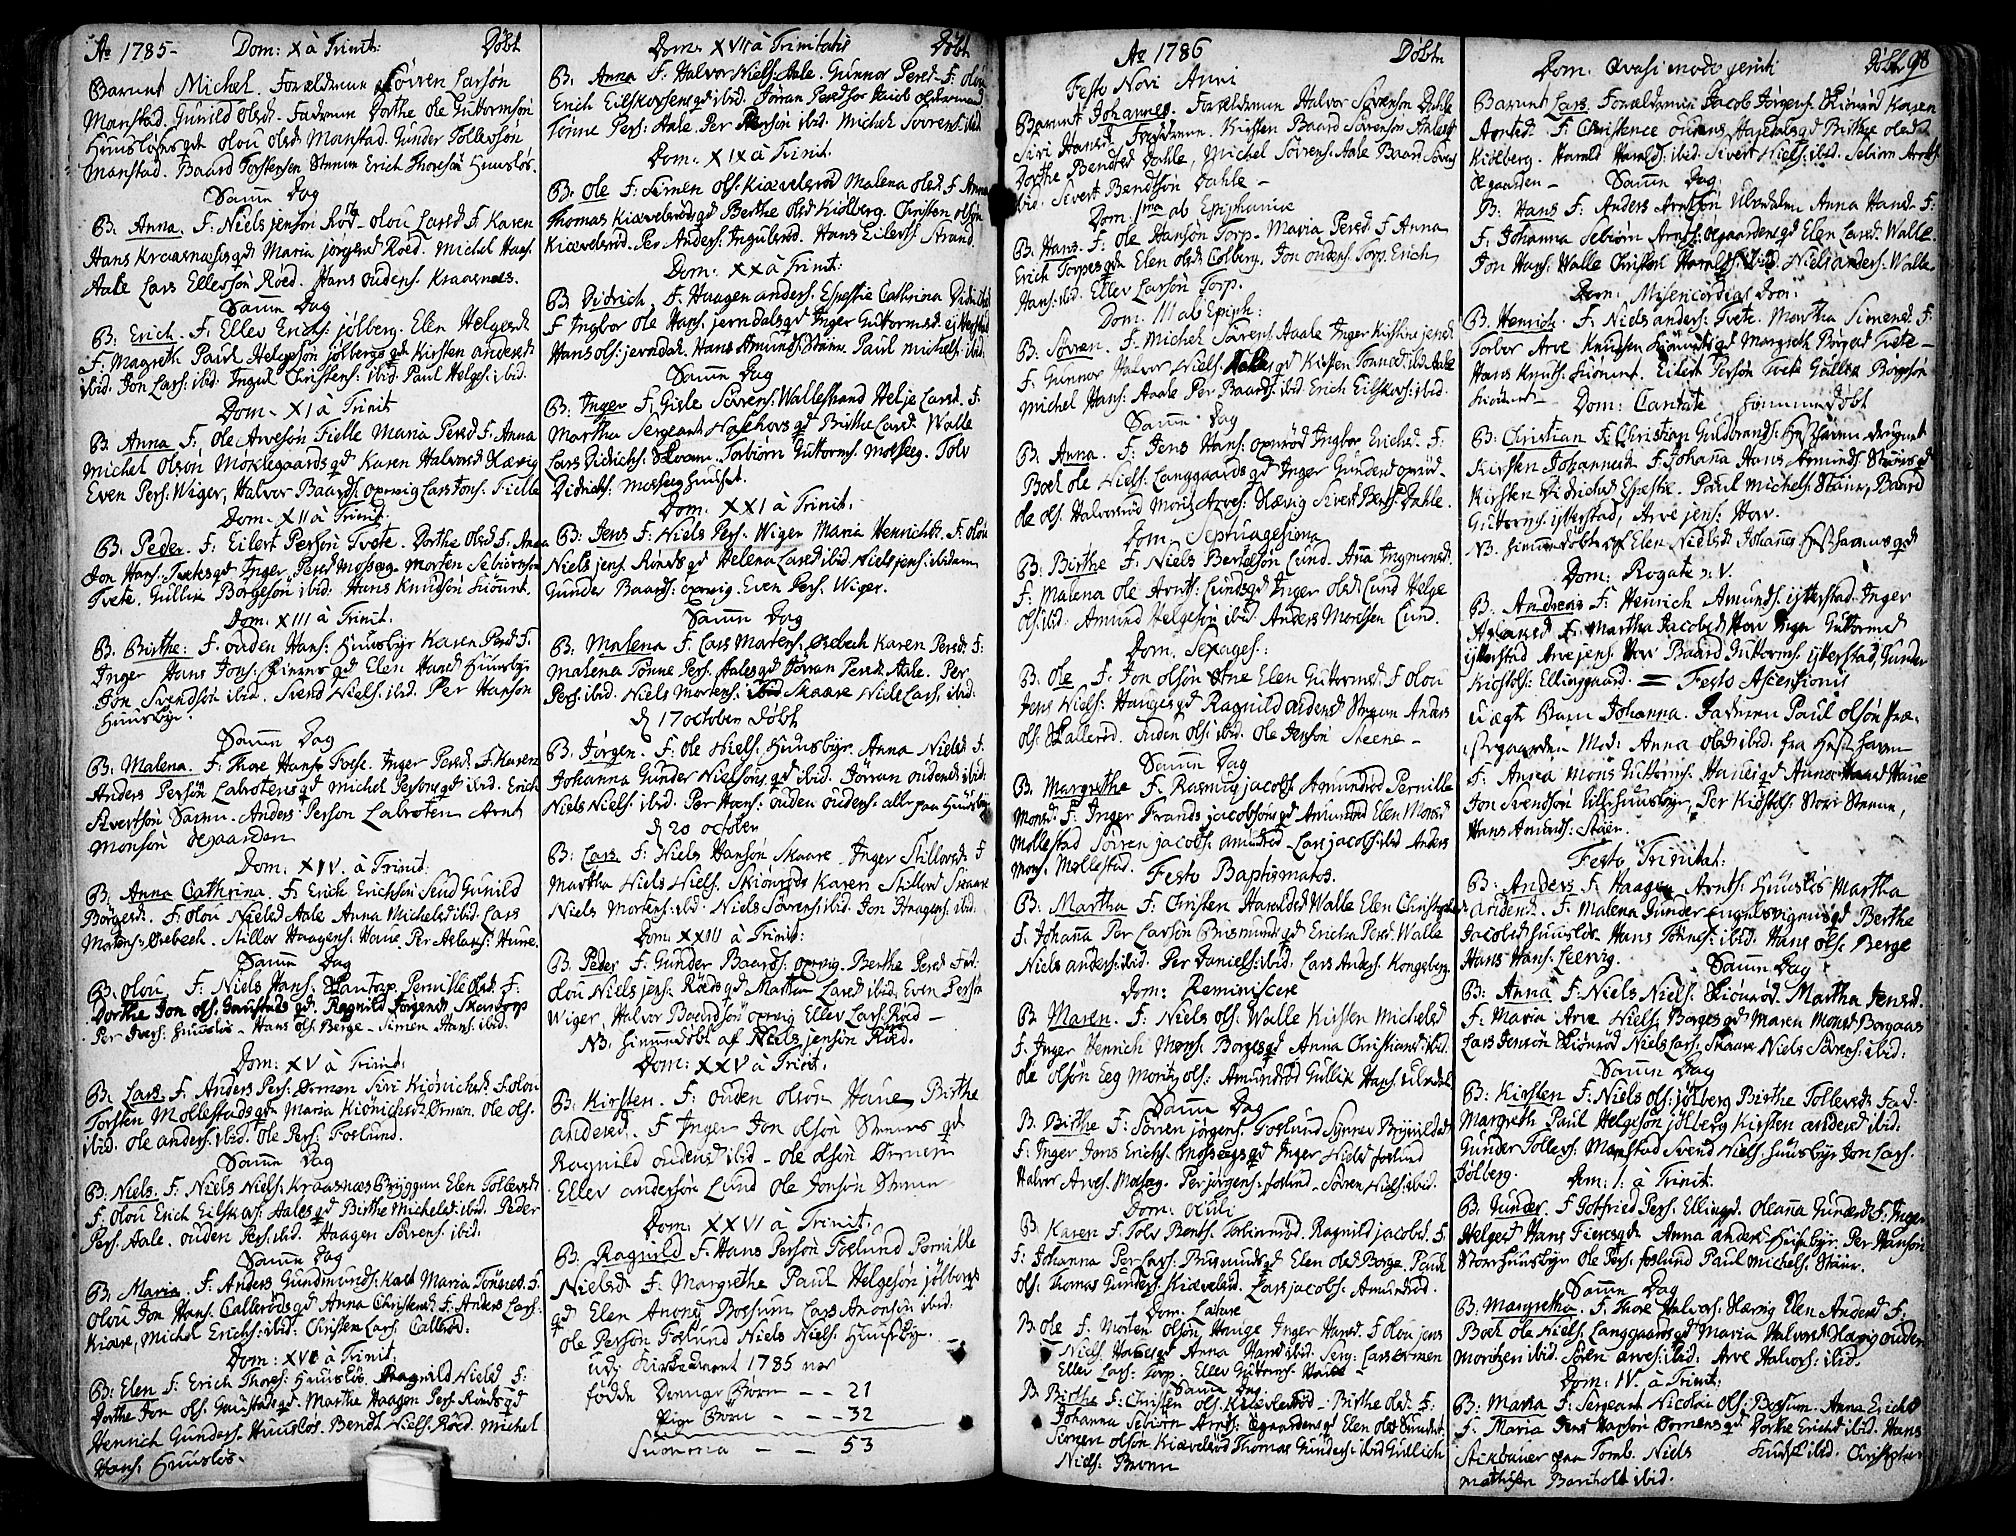 Ao 1785 - Dom: X à Trinit: Döbt
Barnet Michel. Forældrene Sövren Larsön
Manstad. Gunild Olsd. Fadrene Dorthe Ole Guttormsön
Huuslös qd olou olsd Manstad. Gunder Tollevsön
Manstad. Baard Torstensen Steene Erich Thoresön Huuslös.
Samme Dag
B: Anna. F. Niels jensön Röd. olou Larsd F. Karen
Hans Kraarnæs qd Maria jörgensd Roed. Michel Hans:
Aale Lars Ellevsön Röed. Hans oudens: Kraarnæs.
Samme Dag
B: Erich. F. Ellev Erichs: jölberg. Elen Helgesd
F. Magreth Paul Helgesön jölbergs qd Kirsten andersd
ibid. Jon Lars: ibid. Ingul Christens: ibid. Paul Helges: ibid.
Dom. XI à Trinit
B: Anna F: Ole Arvesön Fielle Maria Persd F. Anna
Michel Olsön Mörkegaards qd Karen Halvorsd Hævig
Even Pers: Wiger, Halvor Baards: opsvig Lars Jons: Fielle
Dom. XII à Trinit.
B: Peder. F: Eilert Persön Tvete. Dorthe olsd F. Anna
Jon Hans: Tvetes qd Inger Persd Mosseeg. Morten Sebiörnsön
Tvete. Gullik Börgesön ibid: Hans Knudsön
Dom: XIII à Trinit.
B. Birthe: F. ouden Hans: Huusbye Karen Persd F.
Inger Hans Jons: qd Elen Hansd Huusbye
Jon Svendsön ibid. Svend Niels: ibid. Per Hansön
Huusbye.
Samme Dag
B: Malena. F: Thore Hans: Inger Persd. F. Karen
Anders Persön Labrotens qd Michel Persöns qd ibid. Erich
Sivertsön Anders Persön Labroten Arnt
Monsön Oegaarden
Dom: XIV. à Trinit:
B: Anna Cathrina. F. Erich Erichsön Gunild
Börgesd. F. olou Nielsd Aale Anna Michelsd ibid. Lars
Mortens: Örebech. Stillov Haagens: Haue. Per Aslachs: Haue.
Samme Dag
B: olou. F: Niels Hans: Skantorp. Pernille Olsd. F:
Dorthe Jon ols. Gaustads qd. Ragnild Jörgensd Skantorp
Per Ivers: Huuslös - Hans ols: Berge - Simen Hans: ibid.
Dom: XV à Trinit:
B: Lars. F. Anders Pers: Örmen Siri Kiönichsd F. olou
Torsten Mollestads qd Maria Kiönichsd Örmen. Ole ols.
ibid. Ole anders: ibid. Ole Pers: Foslund.
Samme Dag
B: Niels. F: Niels Niels: Kraarnæs Elen Tollevsd
F. olou Erich Eilskas: Aales qd Birthe Michelsd ibid. Peder
Pers: Aale. ouden Pers: ibid. Haagen Sörrens: ibid.
Samme Dag
B: Maria. F. Anders Gundmunds: Maria Tönnesd. F.
olou Jon Hans: Calleröds qd Anna Christensd. F. Anders Lars:
Kiære, Michel Erichs: ibid: Christen Lars: Calleröd:
Dom: XVI à Trinit.
B: Elen F: Erich Thores: Huuslös. Ragnild Nielsd F:
Dorthe Jon ols: Gaustads qd. Marthe Haagen Pers: Rönds qd
Henrich Gunders: Huuslös. Bendt Niels: Röed. Michel
Hans: Huuslös.
Dom: XVII à Trinitatis Döbt
B: Anna F: Halvor Niels: Aale. Gunnor Persd: F. olou
Erich Eilskassens qd ibid. Jöran Persd Jacob
Tönne Pers: Aale. Per Persön ibid. Michel Sörrens: ibid
Dom: XIX à Trinit.
B: Ole F: Simen ols: Kiævelsröd Malena olsd F. Anna
Thomas Kiævelsröds qd Berthe olsd Kiölberg. Christen olsön
Kiævelsröd. Per Anders: Ingulsröd. Hans Eilers: Strand.
Dom: XX à Trinit:
B: Didrich. F. Haagen anders: Espestie Cathrina Didrichsd
F Ingbor ole Hans: jerndals qd Inger Guttormsd ejtterstad
Hans ols: jerndal. Hans Amunds: Stame. Paul Michels: ibid.
Samme Dag
B: Inger F. Gisle Sörens: Wallestrand Helje Larsd. F:
Martha Sergeant qd Birthe Larsd. Walle
Lars Didrichs: Torbiörn Guttorms. Mosseeg. Tolv
Didrichs: Mosseeg
Dom: XXI à Trinit:
B: Jens F: Niels Pers: Wiger Maria Henrichsd. F: olou
Niels jens: Rönds qd Helena Larsd ibid. Niels jens: ibidem
Gunder Baards: opsvig. Even Pers: Wiger.
Samme Dag
B: Malena F: Lars Martens: Örebech Karen Persd: F:
Malena Tönne Pers: Aales qd Jöran Persd: Aale. Per
Pers: ibid. Niels Mortens: Skaare Niels Lars: ibid.
d 17 october döbt
B: Jörgen. F. ole Niels: Huusbye. Anna Nielsd F.
Johanna Gunder Nielsöns qd ibid. Jöran oudensd ibid.
Niels Niels: ibid. Per Hans: ouden oudens: alle paa Huusbye
d 20 octobr
B: Lars. F: Niels Hansön Skaare. Inger Stillovsd. F
Martha Niels Niels: Skiönröds Karen Stillovsd Skaare
Niels Mortens: ibid. Niels Sörens: ibid. Jon Haagens: ibid.
Dom: XXIII à Trinit:
B: Peder F. Gunder Baards: opsvig. Berthe Persd Fad.
olou Niels jens: Röeds qd Martha Larsd ibid. Even Persön
Wiger, Halvor Baardsön opsvig Ellev Lars: Röed -
NB. hiemmedöbt af Niels jensön Röed.
Dom: XXV à Trinit:
B: Kirsten. F: ouden olsön Haue, Birthe
andersd. F. Inger Jon olsön Steenes qd
Ragnild oudensd ibid - ole olsön Örmen
Ellev andersön Lund ole Jonsön Steene
Dom: XXVI à Trinit:
B: Ragnild F. Hans Persön Foslund Pernille
Nielsd F: Margrethe Paul Helgesön jölbergs
qd Elen Bossum Lars ibid.
ole Persön Foslund Niels Niels: Huusbye.
udi Kirke aaret 1785 var
födde Drenge Börn - - 21
Pige Börn - - - 32
Summa - - 53
Ao 1786 Döbte
Festo Novi Anni
Barnet Johannes. Forældrene Halvor Sövrensön Dahle
Siri Hansd. Faddrene. Kirsten Baard Sövrensön Aales qd
Dorthe Bendtsd Dahle, Michel Sövrens: Aale Baard Sövrens
ibid. Sivert Bendtsön Dahle -
Dom: 1ma ab Epiphaniæ
B: Hans. F: ole Hansön Torp. Maria Persd F Anna
Erich Torpes qd Elen olsd Colberg. Jon oudens: Torp. Erich
Hans: ibid. Ellev Larsön Torp.
Dom: III ab Epiph:
B: Sövren. F. Michel Sövrens: Aale Inger Kirstina jensd
F. Gunnor Halvor Niels: Aales qd Kirsten Tönnesd ibid Aale
Michel Hans: Aale Per Baards: ibid Erich Eilskas: ibid.
Samme Dag
B: Anna. F. Jens Hans: opsröd Ingbor Erichsd. F:
Boel ole Niels: Langgaards qd Inger Gundersd opsröd -
ole ols: Halvorsröd Moritz Arves: Hævig Sivert Bents: Dahle.
Dom Septuagesima
B: Birthe F: Niels Bertelsön Lund. Ana Ingmonsd.
F. Malena ole Arnts: Lunds qd Inger olsd: Lund Helge
ols: ibid. Amund Helgesön ibid. Anders Moritsen Lund.
Dom. Sexages:
B. ole F. Jon olsön Elen Guttormsd F olou
Jens Niels: Hauges qd Ragnild oudensd Steene Anders
ols: Skalleröd. Ouden ols: ibid. Ole Jensön Steene -
Samme Dag
B. Margrethe F. Rasmus jacobs. Agmundröd Pernille
Monsd. F. Inger Frands jacobsöns qd Amundröd Elen Monsd
Mollestad Sövren jacobs: amundröd - Lars jacobs: ibid Anders
Mons. Mollestad. Festo Baptismatos.
B: Martha F: Christen Haralds Walle Elen Christens
F. Johana Per Larsön Brismunds qd Ericha Persd Walle
Niels anders: ibid. Per Daniels: ibid. Lars Anders. Kongsberg.
Dom: Reminiscere
B. Maren. F: Niels ols: Walle Kirsten Michelsd
F. Inger Henrich Mons: Borges qd Anna Christiansd ibid.
ole olsön Eeg Moritz ols: Amundröd Gullik Hans: Ulvedal
Samme Dag
B. Birthe F. Sörren jörgens: Foslund Synnev Brynildsd
F. Inger Jens Erichs: Mosseegs qd Inger Nielsd Foslund
Halvor Arves. Moseeg. Per jörgens: foslund - Sövren Niels: ibid.
Dom: Oculi
B. Karen F: Tolv Bents: Torbiörnröd. Ragnild jacobsd. F.
F. Johanna Per Lars: Brismunds qd Elen olsd Borge. Paul
ols: Thomas Gunders: Kiæveland. Lars jacobs: Amundröd.
Dom. Lætare
B. ole F. Morten olsön Hauge Inger Hansd F. olou jens
Niels: Hauges qd Anna Hansd ibid. Serg: Lars Örmen
Ellev Lars: Torp. Ellev Guttorms: Hauge -
Samme Dag
B Birthe F: Christen ols: Kiævelsröd - Birthe olsd: F:
Johanna Sebiörn Arnts: Oegaardens qd Elen olsd Sundet
Simen olsön Kiævelsröd Thomas Gunders: ibid Gullich
Niels: Broen
Dom: Qvasi modo geniti Döbte 98
Barnet Lars. Forældrene Jacob Jörgens: Skiönröd Karen
Arntsd. F: Christence oudens qd Birthe olsd
Kiölberg. Harald Haralds: ibid. Sivert Niels: ibid. Sebiörn Arnts:
Oegaarden - Samme Dag
B: Hans F: Anders Arntsön Ulvedalen Anna Hansd F:
F. Johanna Sebiörn Arnts: Oegaardens qd Elen Larsd. Walle.
Jon Hans: Walle Christen Haralds: ibid Niels anders: Walle.
Dom: Misericordias Dom:
B: Henrich F: Niels anders: Tvete. Martha Simensd F:
Torbor Arve Knudsen qd Margreth Börgesd Tvete -
Hans Knuts: Eilert Persön Tvete Gullik Börgesön
Dom: Cantate hiemmedöbt
B: Christian F: Christian Guldbrands:
Kirsten Johannesd F. Johana Hans Amunds: Staurs qd
Kirsten Didrichsd Espestie. Paul Michels: Staur, Baard
Guttorms: ijtterstad, Arve jens: Horv.
NB. hiemmedöbt af Elen Nielsd Johannes qd
Dom: Rogate ɔ: V.
B: Andreas F: Henrich Amunds. ijtterstad. Inger
Aslaksd F: Martha Jacobsd Horv Inger Guttormsd
ijtterstad Arve jens: Horv Baard Guttorms: ijtterstad, Gunder
Kiöstols: Ellinggaard. = Festo Ascensionis
Uægte Barn Johanna. Faderen Paul olsön Præ-
stegaarden Mod: Anna olsd ibid. fra
F. Anna Mons Guttorms: Haues qd Anna Haue
Jon Svendsön lille huusbye, Per Kiöstels: Store Steene,
Hans Amunds: Staur.
Festo Trinitat:
B: Anders F: Haagen Arnts: Huuslös Martha
Andersd. F: Malena Gunder Engelsvigens qd Berthe
Jacobsd huuslös. Hans Tönnes: ibid. Hans ols: Berge
Hans Hans: Leervig. Samme Dag
B: Anna F: Niels Niels: Skiönröd. Martha Jensd.
F: Maria Arve Niels: Borges qd Maren Monsd Borgaas
Lars Jensön Skiönröd Niels Lars: Skaare Niels Sörens: ibid:
Samme Dag
B: Kirsten F: Niels ols: jölberg Birthe Tollevsd: Fad.
Margreth Paul Helgesön jölberg Kirsten andersd ibid:
Gunder Tollevs: Manstad Svend Niels: huusbye Jon Lars:
Jölberg. Dom: I: à Trinit.
B: Gunder F: Gotfried Pers: Ellingd. Oleana Gundersd F: Inger
Helgesd Hans Fieres qd Anna andersd Huusbye Per Hansön
Store Huusbye Ole Pers: foslund Paul Michels: Staur.
Samme Dag
B: Margretha. F. Thore Halvors: Hævig Elen Andersd F.
Boel ole Niels: Langgaards qd Maria Halvorsd Hævig ouden
Moritzen ibid. Sören arves: ibid: Arve Halvors: ibid.
Dom: IV. à Trinit:
B: Maria F: Sergeant Nicolai Ols: Bossum. Anna Erichsd
F. Maria Jens Hansön Oormens qd Dorthe Erichsd ibid. Hans
paa Tomb. Niels ibid. Christopher
Mathisen Banholt ibid.